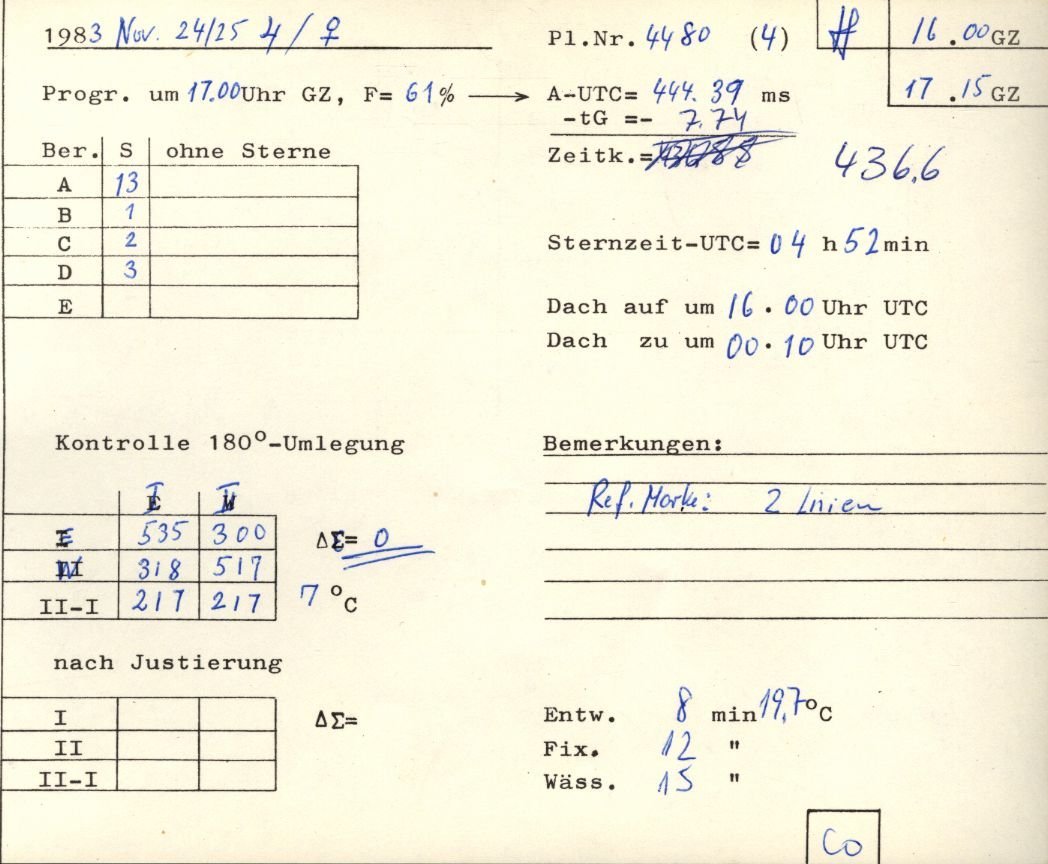 1983 Nov. 24/25 ♃ / ♀
Pl.Nr. 4480 (4)
16.00 GZ
17.15 GZ
Progr. um 17.00 Uhr GZ, F= 61% ⟶ A-UTC= 444.39 ms
-tG =- 7.74
Zeitk.= 436.6
Ber. S ohne Sterne
A 13
B 1
C 2
D 3
E
Sternzeit-UTC= 04 h 52 min
Dach auf um 16.00 Uhr UTC
Dach zu um 00.10 Uhr UTC
Kontrolle 180°-Umlegung
I II
E 535 300 ΔΣ= 0
W 318 517
II-I 217 217 7 °C
Bemerkungen:
Ref. Marke: 2 Linien
nach Justierung
I ΔΣ=
II
II-I
Entw. 8 min 19,7°C
Fix. 12 "
Wäss. 15 "
Co